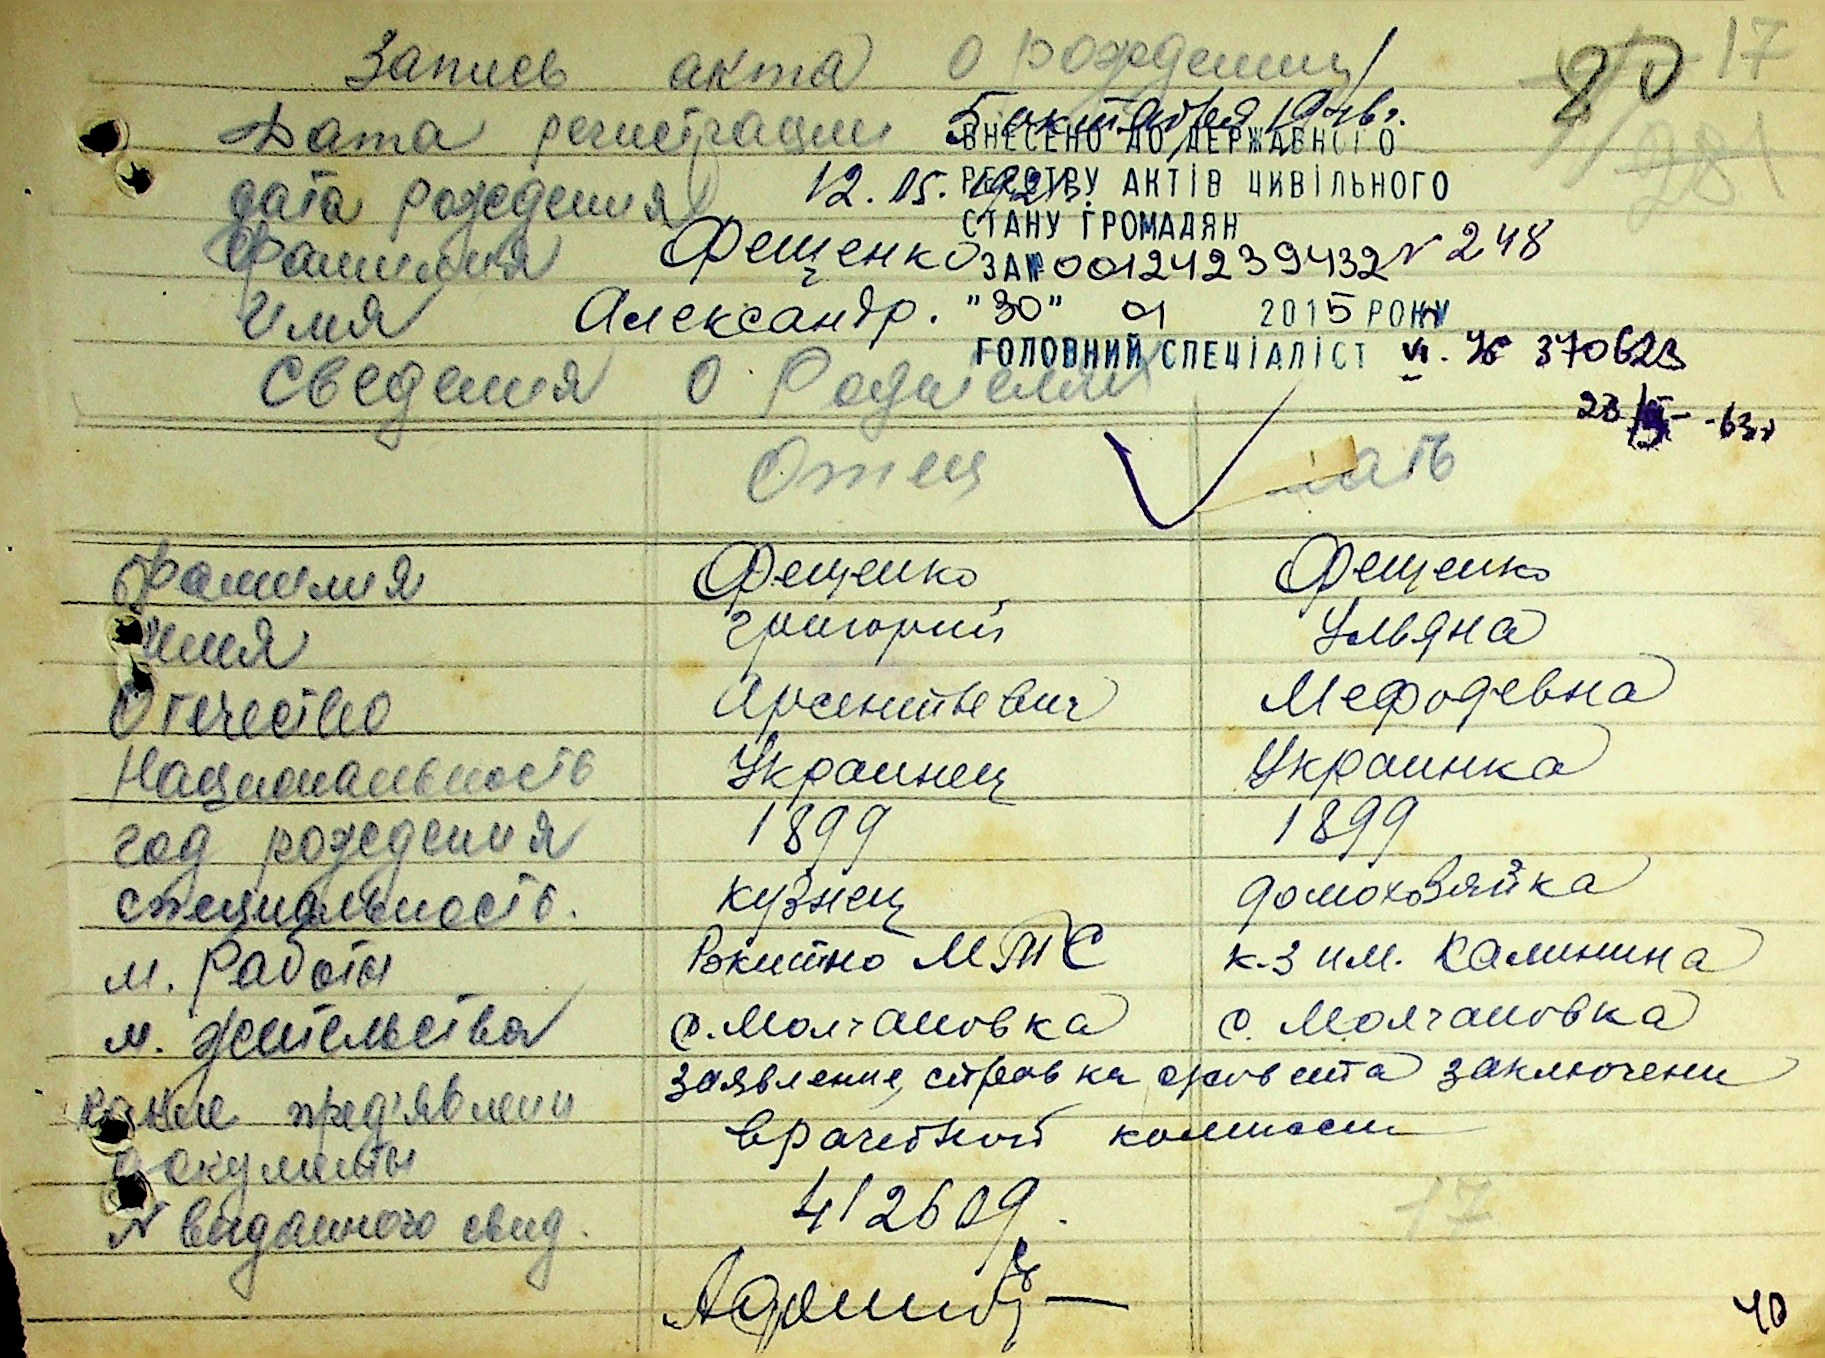 Запись акта о рождении
80 17
281
Дата регистрации 5 октября 194 г.
ВНЕСЕНО ДО ДЕРЖАВНОГО
дата рождения 12. 05.
РЕЄСТРУ АКТІВ ЦИВІЛЬНОГО
СТАНУ ГРОМАДЯН
Фамилия Фещенко
ЗА № 00124239432 № 248
Имя Александр.
"30" 01 2015 РОКУ
ГОЛОВНИЙ СПЕЦІАЛІСТ
370623
Сведения о Родителях
23 -63г
Отец мать
Фамилия Фещенко Фещенко
имя Григорий Ульяна
Отечество Арсентьевич Мефодевна
Национальность Украинец Украинка
год рождения 1899 1899
специальность. кузнец домохозяйка
м. Работы Рокитно МТС к-з им. Калинина
м. жительства с. Молчановка с. Молчановка
какие пред'явлены заявление, справка заключени
документы врачебной комиссии
N выданного свид. 412609.
17
40